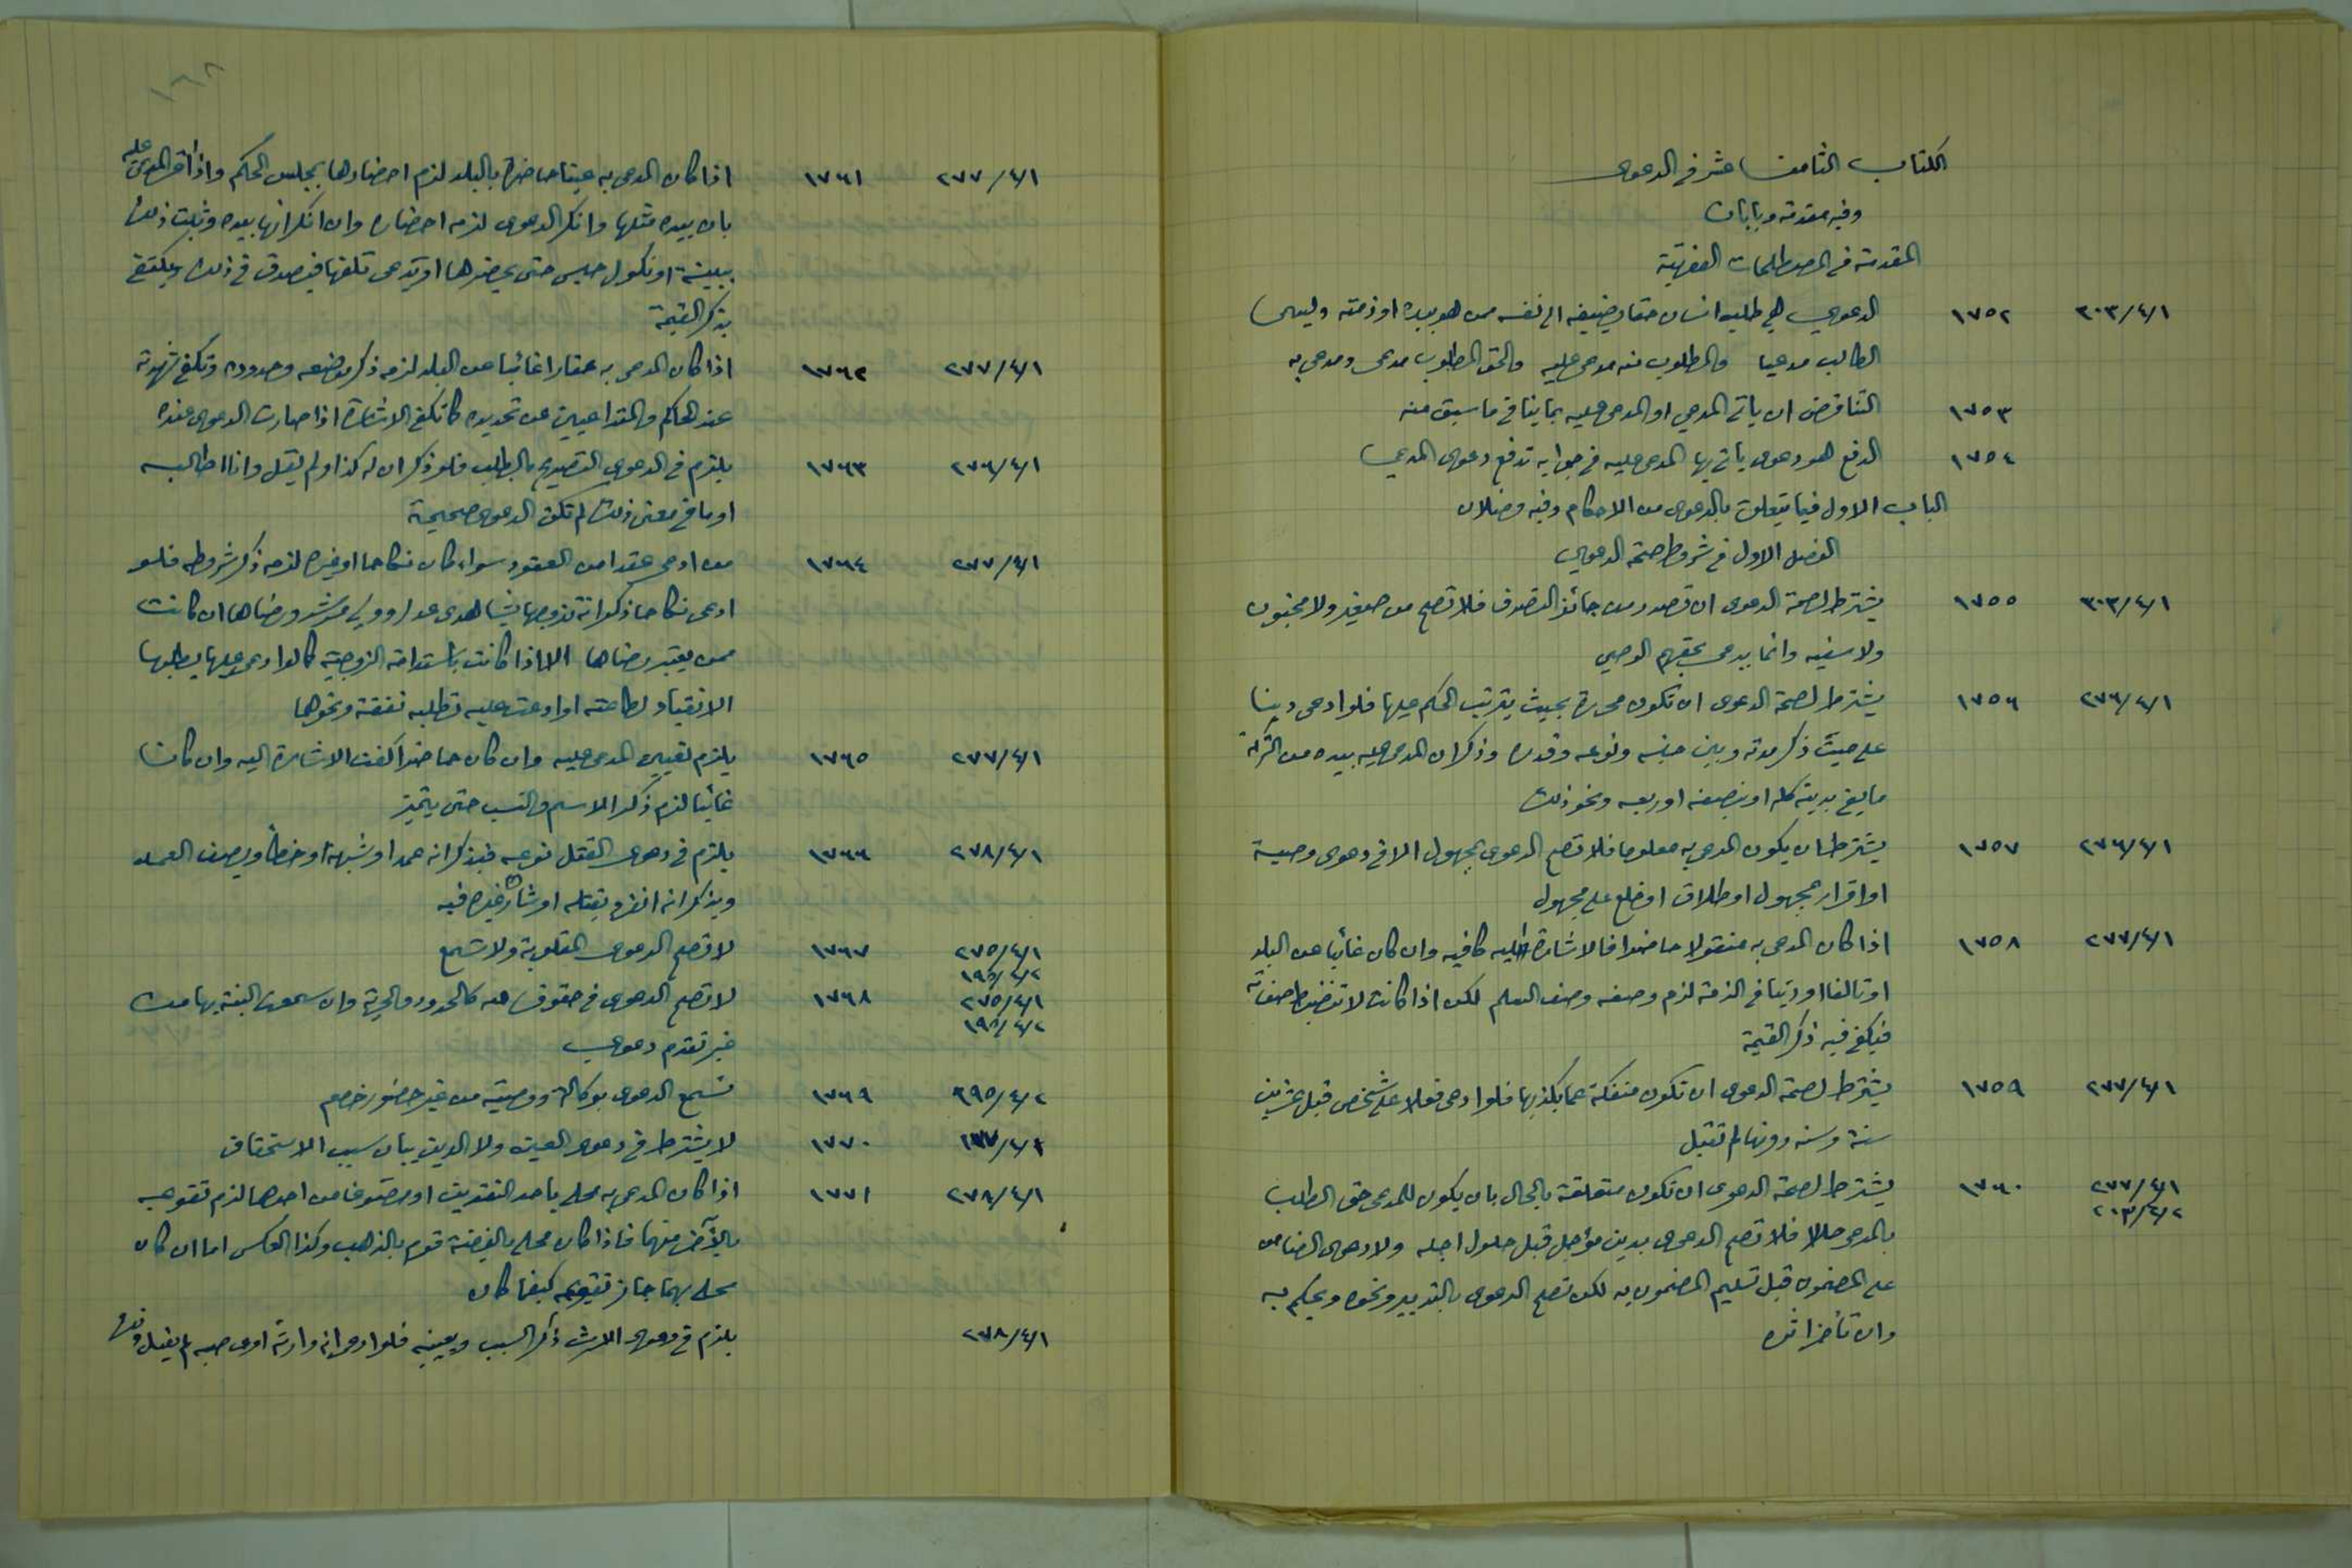 الكتاب الثامن عشر في الدعوى
وفيه مقدمة وبابان
المقدمة في المصطلحات الفقهية
٣٠٣/٤/١ ١٧٥٢ الدعوى هي طلب انسان حقا يضيفه الى نفسه ممن هو بيده او ذمته ويسمى
الطالب مدعيا والمطلوب منه مدعى عليه والحق المطلوب مدعى ومدعى به
١٧٥٣ التناقض ان يأتي المدعي او المدعى عليه بما ينافي ما سبق منه
١٧٥٤ الدفع هو دعوى يأتي بها المدعى عليه في جوابه تدفع دعوى المدعي
الباب الاول فيما يتعلق بالدعوى من الاحكام وفيه فصلان
الفصل الاول في شروط صحة الدعوى
٣٠٣/٤/١ ١٧٥٥ يشترط لصحة الدعوى ان تصدر من جائز التصرف فلا تصح من صغير ولا مجنون
ولا سفيه وانما يدعي بحقهم الوصي
٢٧٦/٤/١ ١٧٥٦ يشترط لصحة الدعوى ان تكون محررة بحيث يترتب الحكم عليها فلو ادعى دينا
على ميت ذكر موته وبين جنسه ونوعه وقدره وذكر ان المدعى عليه بيده من التركة
ما يفي بدينه كله او بنصفه او ربعه ونحو ذلك
٢٧٦/٤/١ ١٧٥٧ يشترط ان يكون المدعى به معلوما فلا تصح الدعوى بمجهول الا في دعوى وصية
او اقرار بمجهول او طلاق او خلع على مجهول
٢٧٧/٤/١ ١٧٥٨ اذا كان المدعى به منقولا حاضرا فالاشارة اليه كافيه وان كان غائبا عن البلد
او تالفا او دينا في الذمة لزم وصفه وصف السلم لكن اذا كانت لا تنضبط صفاته
فيكفي فيه ذكر القيمة
٢٧٧/٤/١ ١٧٥٩ يشترط لصحة الدعوى ان تكون منفكة عما يكذبها فلو ادعى فعلا على شخص قبل عشرين
سنة وسنه دونها لم تقبل
٢٧٧/٤/١ ١٧٦٠ يشترط لصحة الدعوى ان تكون متعلقة بالحال بان يكون للمدعي حق الطلب
٢٠٣/٤/٢ بالمدعى حالا فلا تصح الدعوى بدين مؤجل قبل حلول اجله ولا دعوى الضامن
على المضمون قبل تسليم المضمون به لكن تصح الدعوى بالتدبير ونحوه ويحكم به
وان تأخر اثره
٢٧٧/٤/١ ١٧٦١ اذا كان المدعى به عينا حاضرة بالبلد لزم احضارها بمجلس الحكم واذا اقر المدعى عليه
بان بيده مثلها وانكر الدعوى لزمه احضاره وان انكر انها بيده وثبت ذلك
ببينة او نكول حبس حتى يحضرها او يدعي تلفها فيصدق في ذلك ويكتفى
بذكر القيمة
٢٧٧/٤/١ ١٧٦٢ اذا كان المدعى به عقارا غائبا عن البلد لزمه ذكر موضعه وحدوده وتكفي شهرته
عند الحاكم والمتداعيين عن تحديده كما تكفي الاشارة اذا صارت الدعوى عنده
٢٧٦/٤/١ ١٧٦٣ يلزم في الدعوى التصريح بالطلب فلو ذكر ان له كذا ولم يقل وانا اطالبه
او ما في معنى ذلك لم تكن الدعوى صحيحة
٢٧٧/٤/١ ١٧٦٤ من ادعى عقدا من العقود سواء كان نكاحا او غيره لزمه ذكر شروطه فلو
ادعى نكاحا ذكر انه تزوجها بشاهدي عدل وولي مرشد ورضاها ان كانت
ممن يعتبر رضاها الا اذا كانت باستدامة الزوجية كما لو ادعى عليها يطلبها
الانقياد لطاعته او ادعت عليه تطلبه نفقة ونحوها
٢٧٧/٤/١ ١٧٦٥ يلزم تعيين المدعى عليه وان كان حاضرا كفت الاشارة اليه وان كان
غائبا لزم ذكر الاسم والنسب حتى يتميز
٢٧٨/٤/١ ١٧٦٦ يلزم في دعوى القتل نوعه فيذكر انه عمد او شبهه او خطأ ويصف العمد
ويذكر انه انفرد بقتله او شاركه غيره فيه
٢٧٥/٤/١ ١٧٦٧ لا تصح الدعوى المقلوبة ولا تسمع
١٩٥/٤/٢
٢٧٥/٤/١ ١٧٦٨ لا تصح الدعوى في حقوق الله كالحدود والحرية وان سمعت البينة بها من
١٩٥/٤/٢ غير تقدم دعوى
١٩٥/٤/٢ ١٧٦٩ تسمع الدعوى بوكالة ووصية من غير حضور خصم
٢٧٧/٤/١ ١٧٧٠ لا يشترط في دعوى العين ولا الدين بيان سبب الاستحقاق
٢٧٨/٤/١ ١٧٧١ اذا كان المدعى به محلى باحد النقدين او مصنوعا من احدهما لزم تقويمه
بالآخر منهما فاذا كان محلى بالفضة قوم بالذهب وكذا العكس اما ان كان
محلى بهما جاز تقويمه كيفما كان
٢٧٨/٤/١ يلزم في دعوى الارث ذكر السبب وتعيينه فلو ادعى انه وارثه او مع لم يقبل